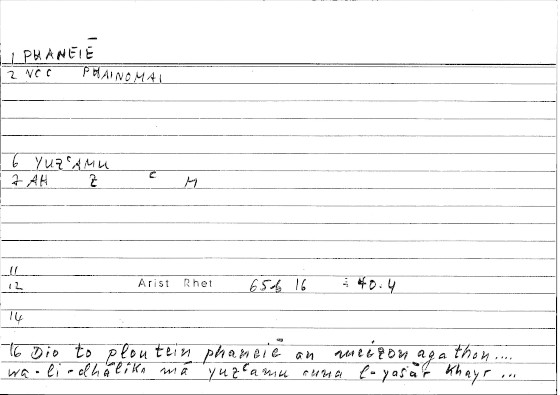 1 PHANEIĒ
2 VCC PHAINOMAI
6 YUZᶜAMU
7 AH Z ᶜ M
11
12 Arist Rhet 65b 16 = 40.4
14
16 Dio to ploutein phaneiē an meizon agathon....
wa-li-dhālika mā yuzᶜamu anna l-yasār khayr ...